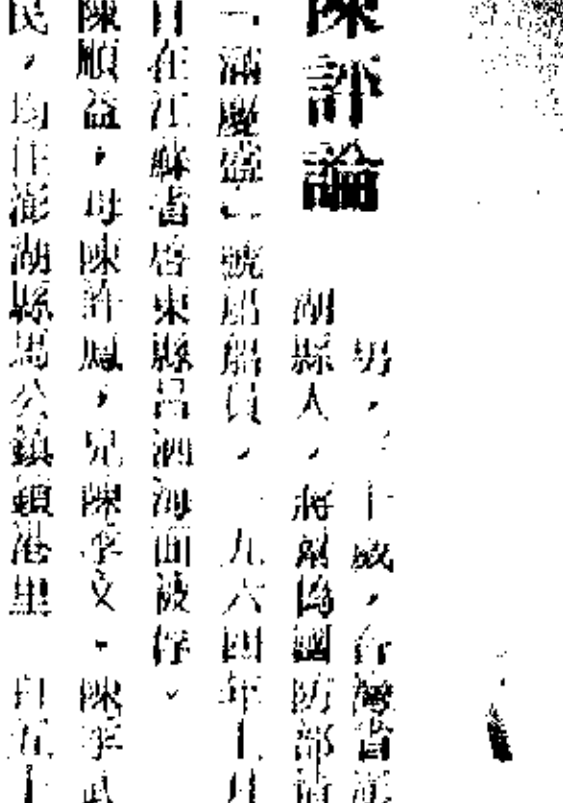 陳評論
男，三十歲，台灣省澎
湖縣人，蔣幫偽國防部
「滿慶盛」號船船員，一九六四年七月
日在江蘇省啓東縣呂泗海面被俘。
陳順益，母陳許鳳，兄陳孚文，陳孚武
民，均住澎湖縣馬公鎮鎖港里 日五十